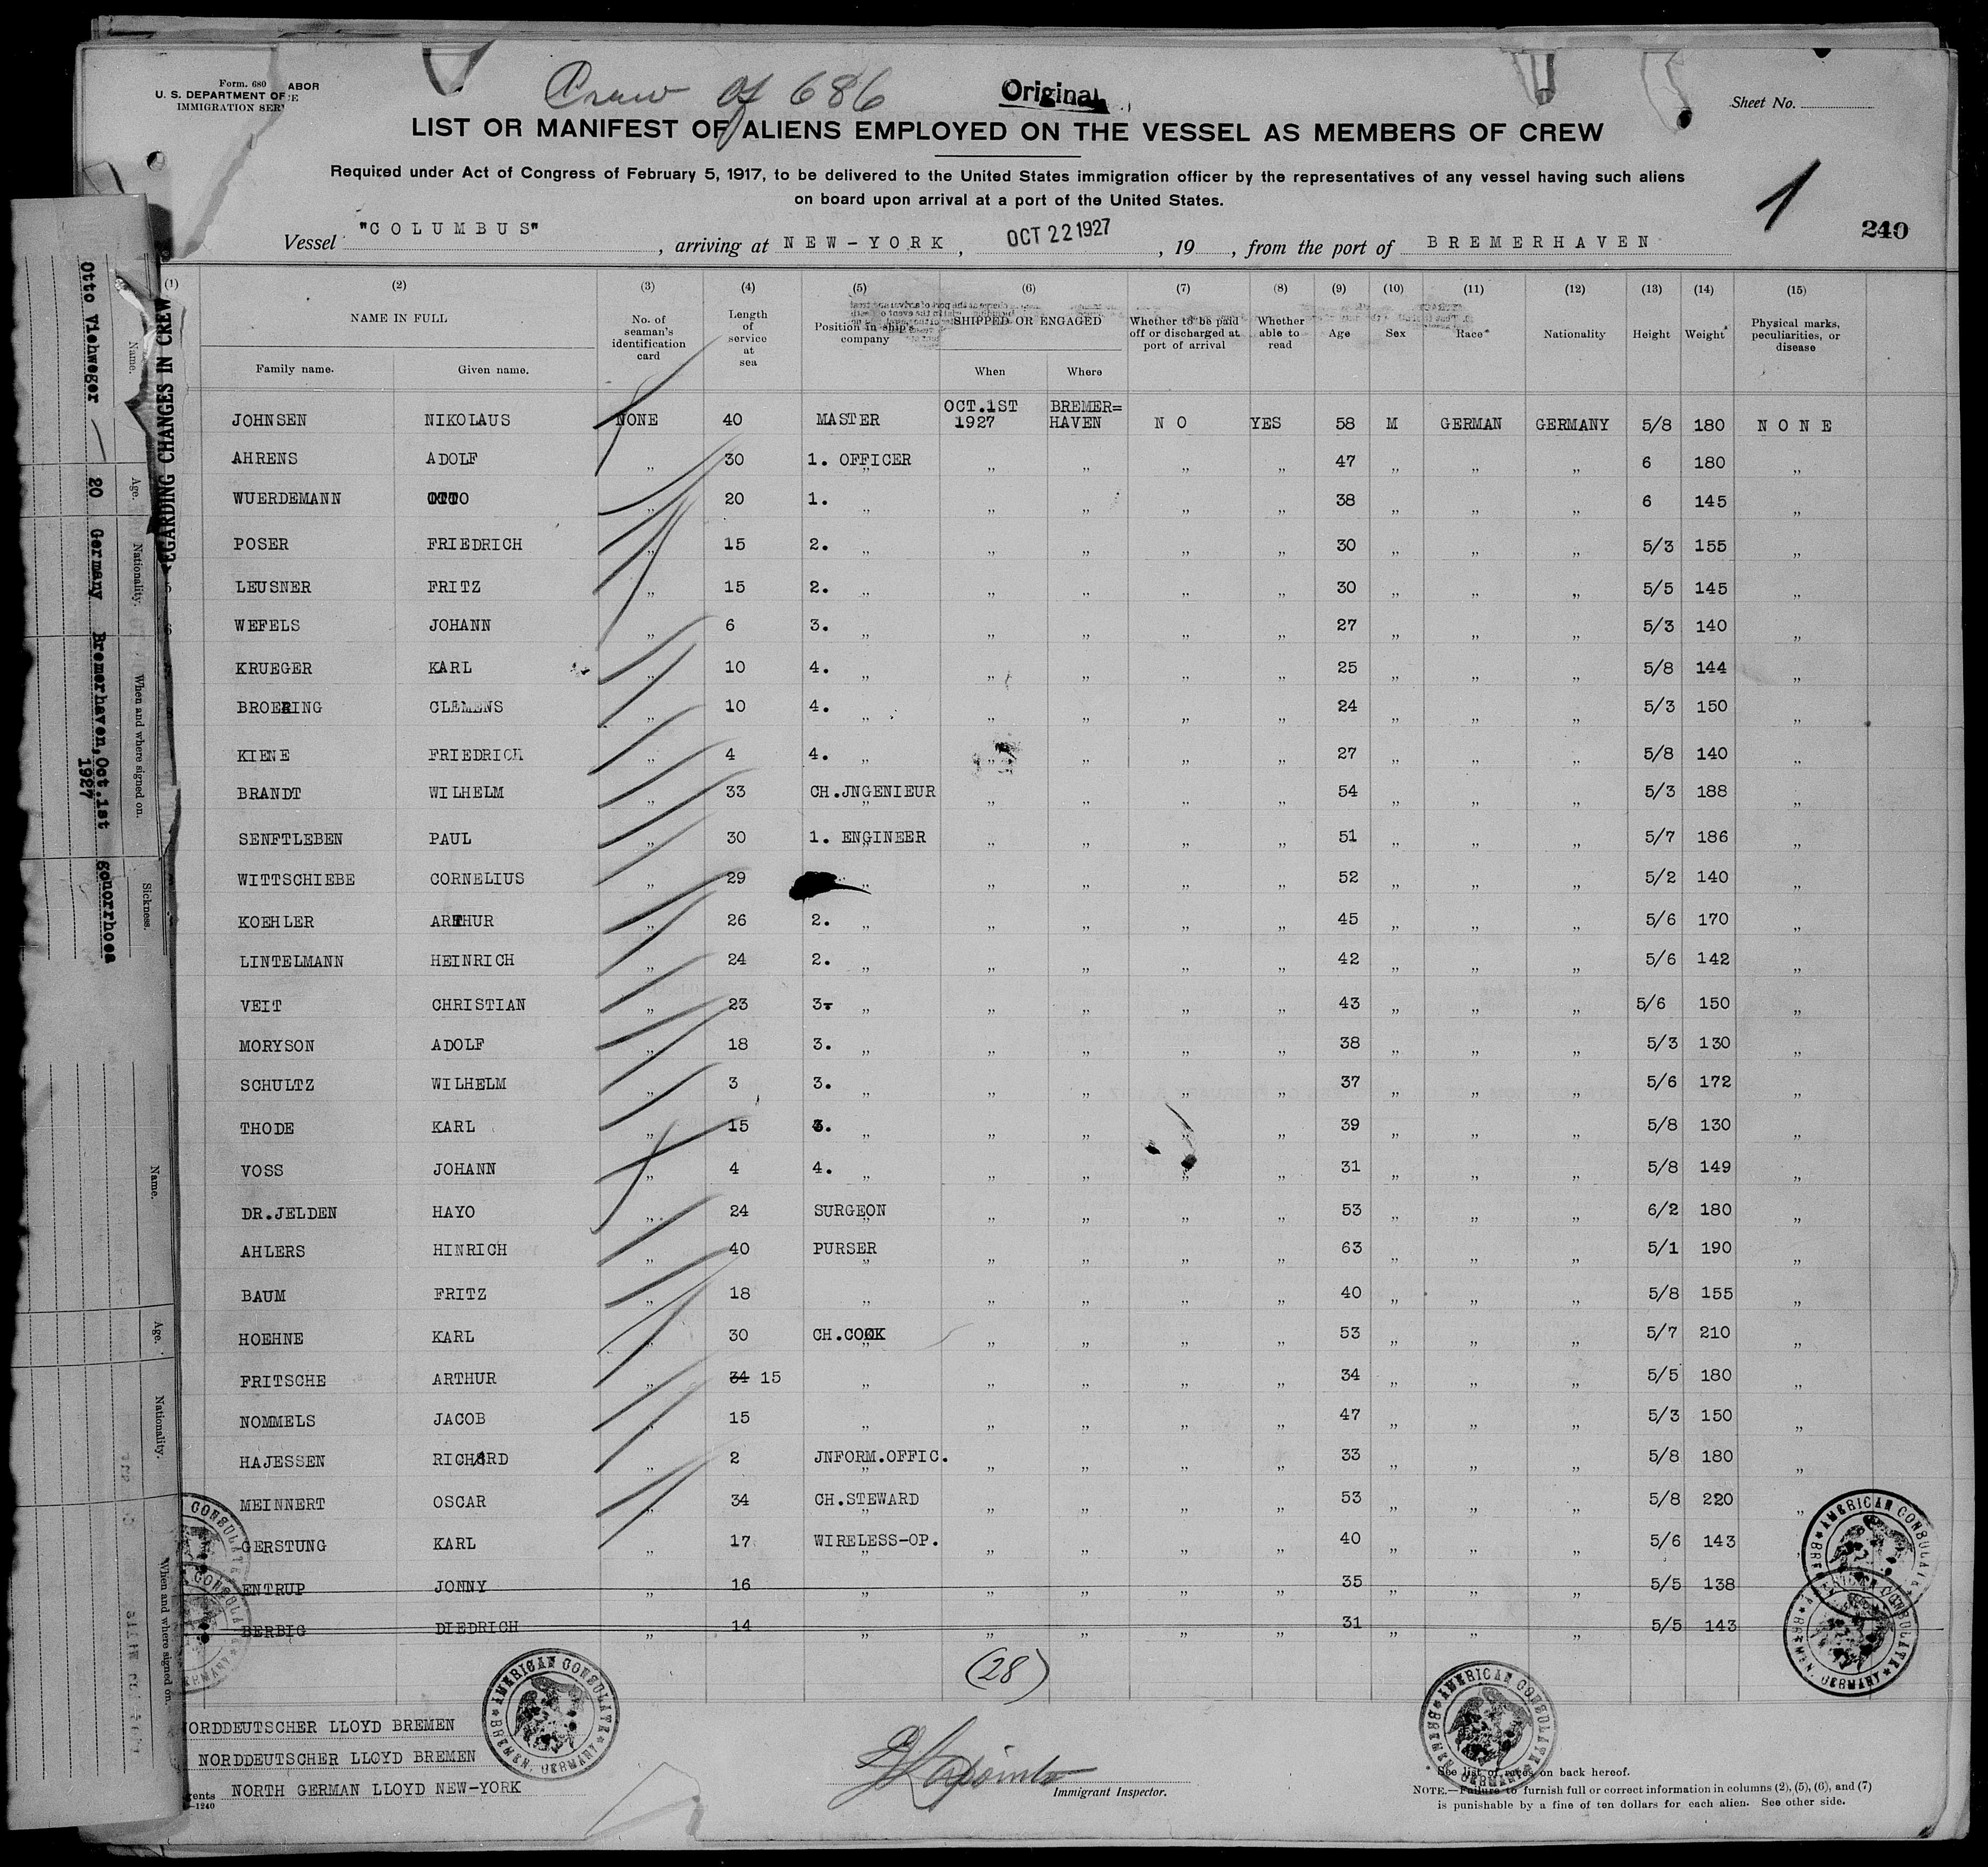 Form. 680
U. S. DEPARTMENT OF LABOR
IMMIGRATION SER
Crew of 686
Original
Sheet No.
LIST OR MANIFEST OF ALIENS EMPLOYED ON THE VESSEL AS MEMBERS OF CREW
Required under Act of Congress of February 5, 1917, to be delivered to the United States immigration officer by the representatives of any vessel having such aliens
on board upon arrival at a port of the United States.
1
240
Vessel "COLUMBUS", arriving at NEW-YORK, OCT 22 1927, 19, from the port of BREMERHAVEN
(1) (2) (3) (4) (5) (6) (7) (8) (9) (10) (11) (12) (13) (14) (15)
NAME IN FULL
Family name. Given name.
No. of seaman's identification card
Length of service at sea
Position in ship's company
SHIPPED OR ENGAGED
When Where
Whether to be paid off or discharged at port of arrival
Whether able to read
Age Sex Race* Nationality Height Weight
Physical marks, peculiarities, or disease
JOHNSEN NIKOLAUS NONE 40 MASTER OCT.1ST 1927 BREMER=HAVEN NO YES 58 M GERMAN GERMANY 5/8 180 NONE
AHRENS ADOLF „ 30 1. OFFICER „ „ „ „ 47 „ „ „ 6 180 „
WUERDEMANN OTTO „ 20 1. „ „ „ „ „ 38 „ „ „ 6 145 „
POSER FRIEDRICH „ 15 2. „ „ „ „ „ 30 „ „ „ 5/3 155 „
LEUSNER FRITZ „ 15 2. „ „ „ „ „ 30 „ „ „ 5/5 145 „
WEFELS JOHANN „ 6 3. „ „ „ „ „ 27 „ „ „ 5/3 140 „
KRUEGER KARL „ 10 4. „ „ „ „ „ 25 „ „ „ 5/8 144 „
BROERING CLEMENS „ 10 4. „ „ „ „ „ 24 „ „ „ 5/3 150 „
KIENE FRIEDRICH „ 4 4. „ „ „ „ „ 27 „ „ „ 5/8 140 „
BRANDT WILHELM „ 33 CH.JNGENIEUR „ „ „ „ 54 „ „ „ 5/3 188 „
SENFTLEBEN PAUL „ 30 1. ENGINEER „ „ „ „ 51 „ „ „ 5/7 186 „
WITTSCHIEBE CORNELIUS „ 29 „ „ „ „ „ 52 „ „ „ 5/2 140 „
KOEHLER ARTHUR „ 26 2. „ „ „ „ „ 45 „ „ „ 5/6 170 „
LINTELMANN HEINRICH „ 24 2. „ „ „ „ „ 42 „ „ „ 5/6 142 „
VEIT CHRISTIAN „ 23 3. „ „ „ „ „ 43 „ „ „ 5/6 150 „
MORYSON ADOLF „ 18 3. „ „ „ „ „ 38 „ „ „ 5/3 130 „
SCHULTZ WILHELM „ 3 3. „ „ „ „ „ 37 „ „ „ 5/6 172 „
THODE KARL „ 15 „ „ „ „ „ 39 „ „ „ 5/8 130 „
VOSS JOHANN „ 4 4. „ „ „ „ „ 31 „ „ „ 5/8 149 „
DR.JELDEN HAYO „ 24 SURGEON „ „ „ „ 53 „ „ „ 6/2 180 „
AHLERS HINRICH „ 40 PURSER „ „ „ „ 63 „ „ „ 5/1 190 „
BAUM FRITZ „ 18 „ „ „ „ „ 40 „ „ „ 5/8 155 „
HOEHNE KARL „ 30 CH.COOK „ „ „ „ 53 „ „ „ 5/7 210 „
FRITSCHE ARTHUR „ 34 15 „ „ „ „ „ 34 „ „ „ 5/5 180 „
NOMMELS JACOB „ 15 „ „ „ „ „ 47 „ „ „ 5/3 150 „
HAJESSEN RICHARD „ 2 JNFORM.OFFIC. „ „ „ „ 33 „ „ „ 5/8 180 „
MEINNERT OSCAR „ 34 CH.STEWARD „ „ „ „ 53 „ „ „ 5/8 220 „
GERSTUNG KARL „ 17 WIRELESS-OP. „ „ „ „ 40 „ „ „ 5/6 143
ENTRUP JONNY „ 16 „ „ „ „ „ 35 „ „ „ 5/5 138
BERBIG DIEDRICH „ 14 „ „ „ „ „ 31 „ „ „ 5/5 143
(28)
NORDDEUTSCHER LLOYD BREMEN
NORDDEUTSCHER LLOYD BREMEN
gents NORTH GERMAN LLOYD NEW-YORK
—1240
Immigrant Inspector.
See list of races on back hereof.
NOTE.—Failure to furnish full or correct information in columns (2), (5), (6), and (7)
is punishable by a fine of ten dollars for each alien. See other side.
AMERICAN CONSULATE BREMEN, GERMANY
AMERICAN CONSULATE BREMEN, GERMANY
AMERICAN CONSULATE BREMEN, GERMANY
EGARDING CHANGES IN CREW
Name. Age. Nationality. When and where signed on. Sickness.
Otto Viehweger 20 Germany Bremerhaven, Oct.1st 1927 Gonorrhoea
Name. Age. Nationality. When and where signed on.